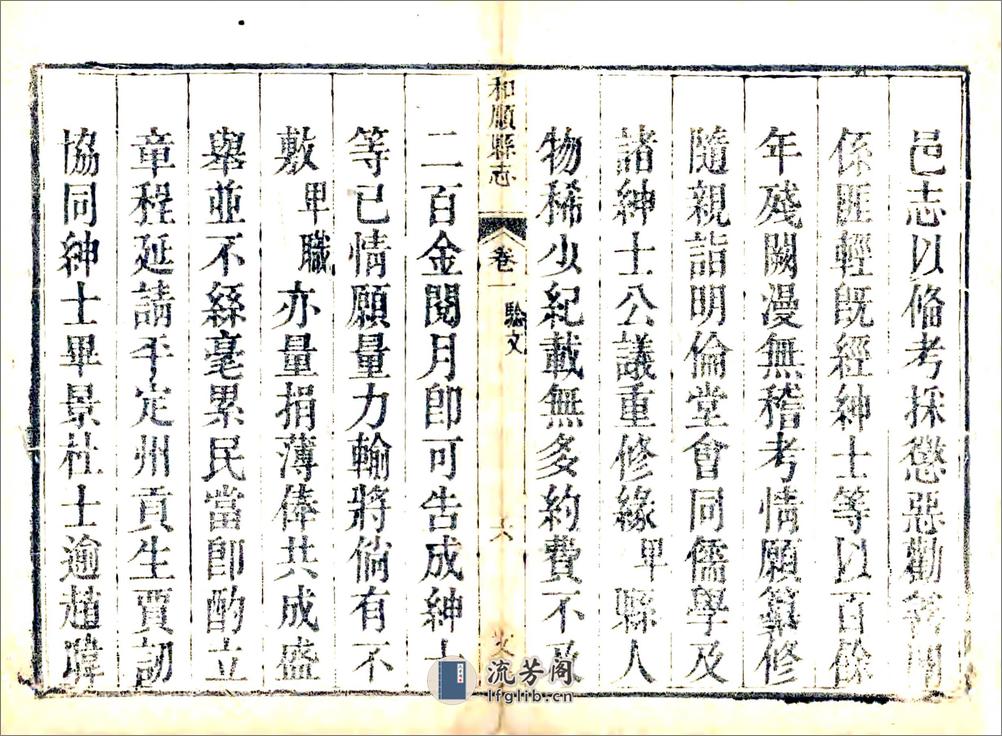 邑志以俻考採懲惡勸善關
係匪輕既經紳士等以百餘
年殘闕漫無稽考情願纂修
隨親詣明倫堂會同儒學及
諸紳士公議重修緣卑縣人
物稀少紀載無多約費不敷
和順縣志
卷一
驗文
六
二百金閱月卽可告成紳士
等已情願量力輸將倘有不
敷卑職亦量捐薄俸共成盛
舉並不絲毫累民當卽酌立
章程延請平定州貢生賈訒
協同紳士畢景杜士逾趙瑋
流芳阁
lfglib.cn